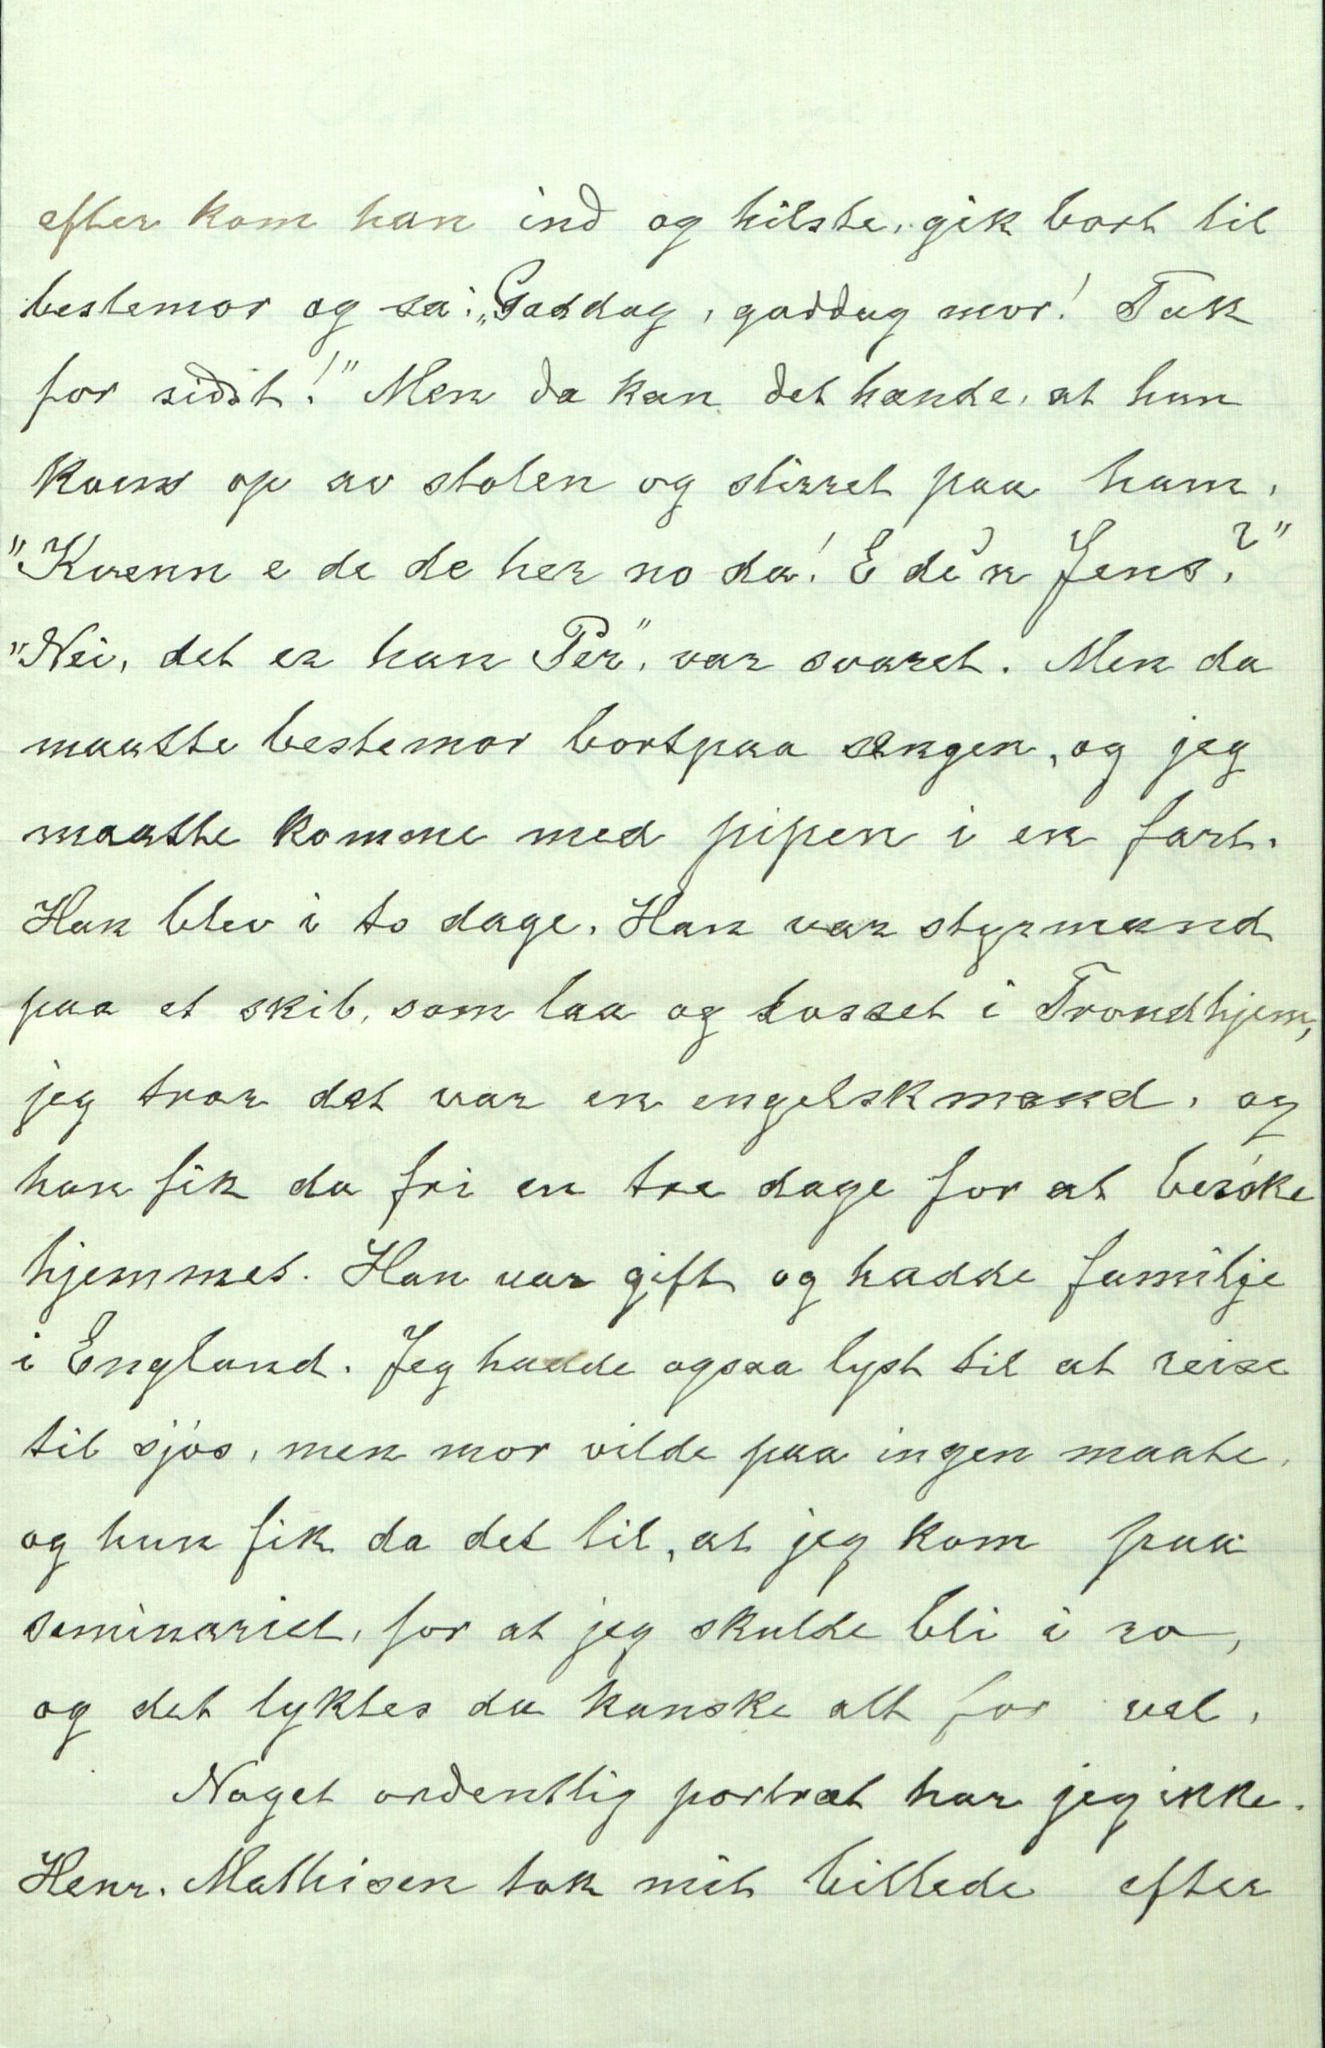 efter kom han ind og hilste, gik bort til
bestemor og sa: „Goddag, goddag mor! Tak
for sidst!” Men da kan det hænde, at hun
kom op av stolen og stirret paa ham,
"Kvenn e de de her no da! E de'n Jens?"
"Nei, det er han Per", var svaret. Men da
maatte bestemor bortpaa sengen, og jeg
maatte komme med pipen i en fart.
Han blev i to dage. Han var styrmand
paa et skib, som laa og losset i Trondhjem,
jeg tror det var en engelskmand, og
han fik da fri en tre dage for at besøke
hjemmet. Han var gift og hadde familje
i England. Jeg hadde ogsaa lyst til at reise
til sjøs, men mor vilde paa ingen maate,
og hun fik da det til, at jeg kom paa
seminariet, for at jeg skulde bli i ro,
og det lyktes da kanske alt for vel.
Noget ordentlig portræt har jeg ikke.
Henr. Mathisen tok mit billede efter